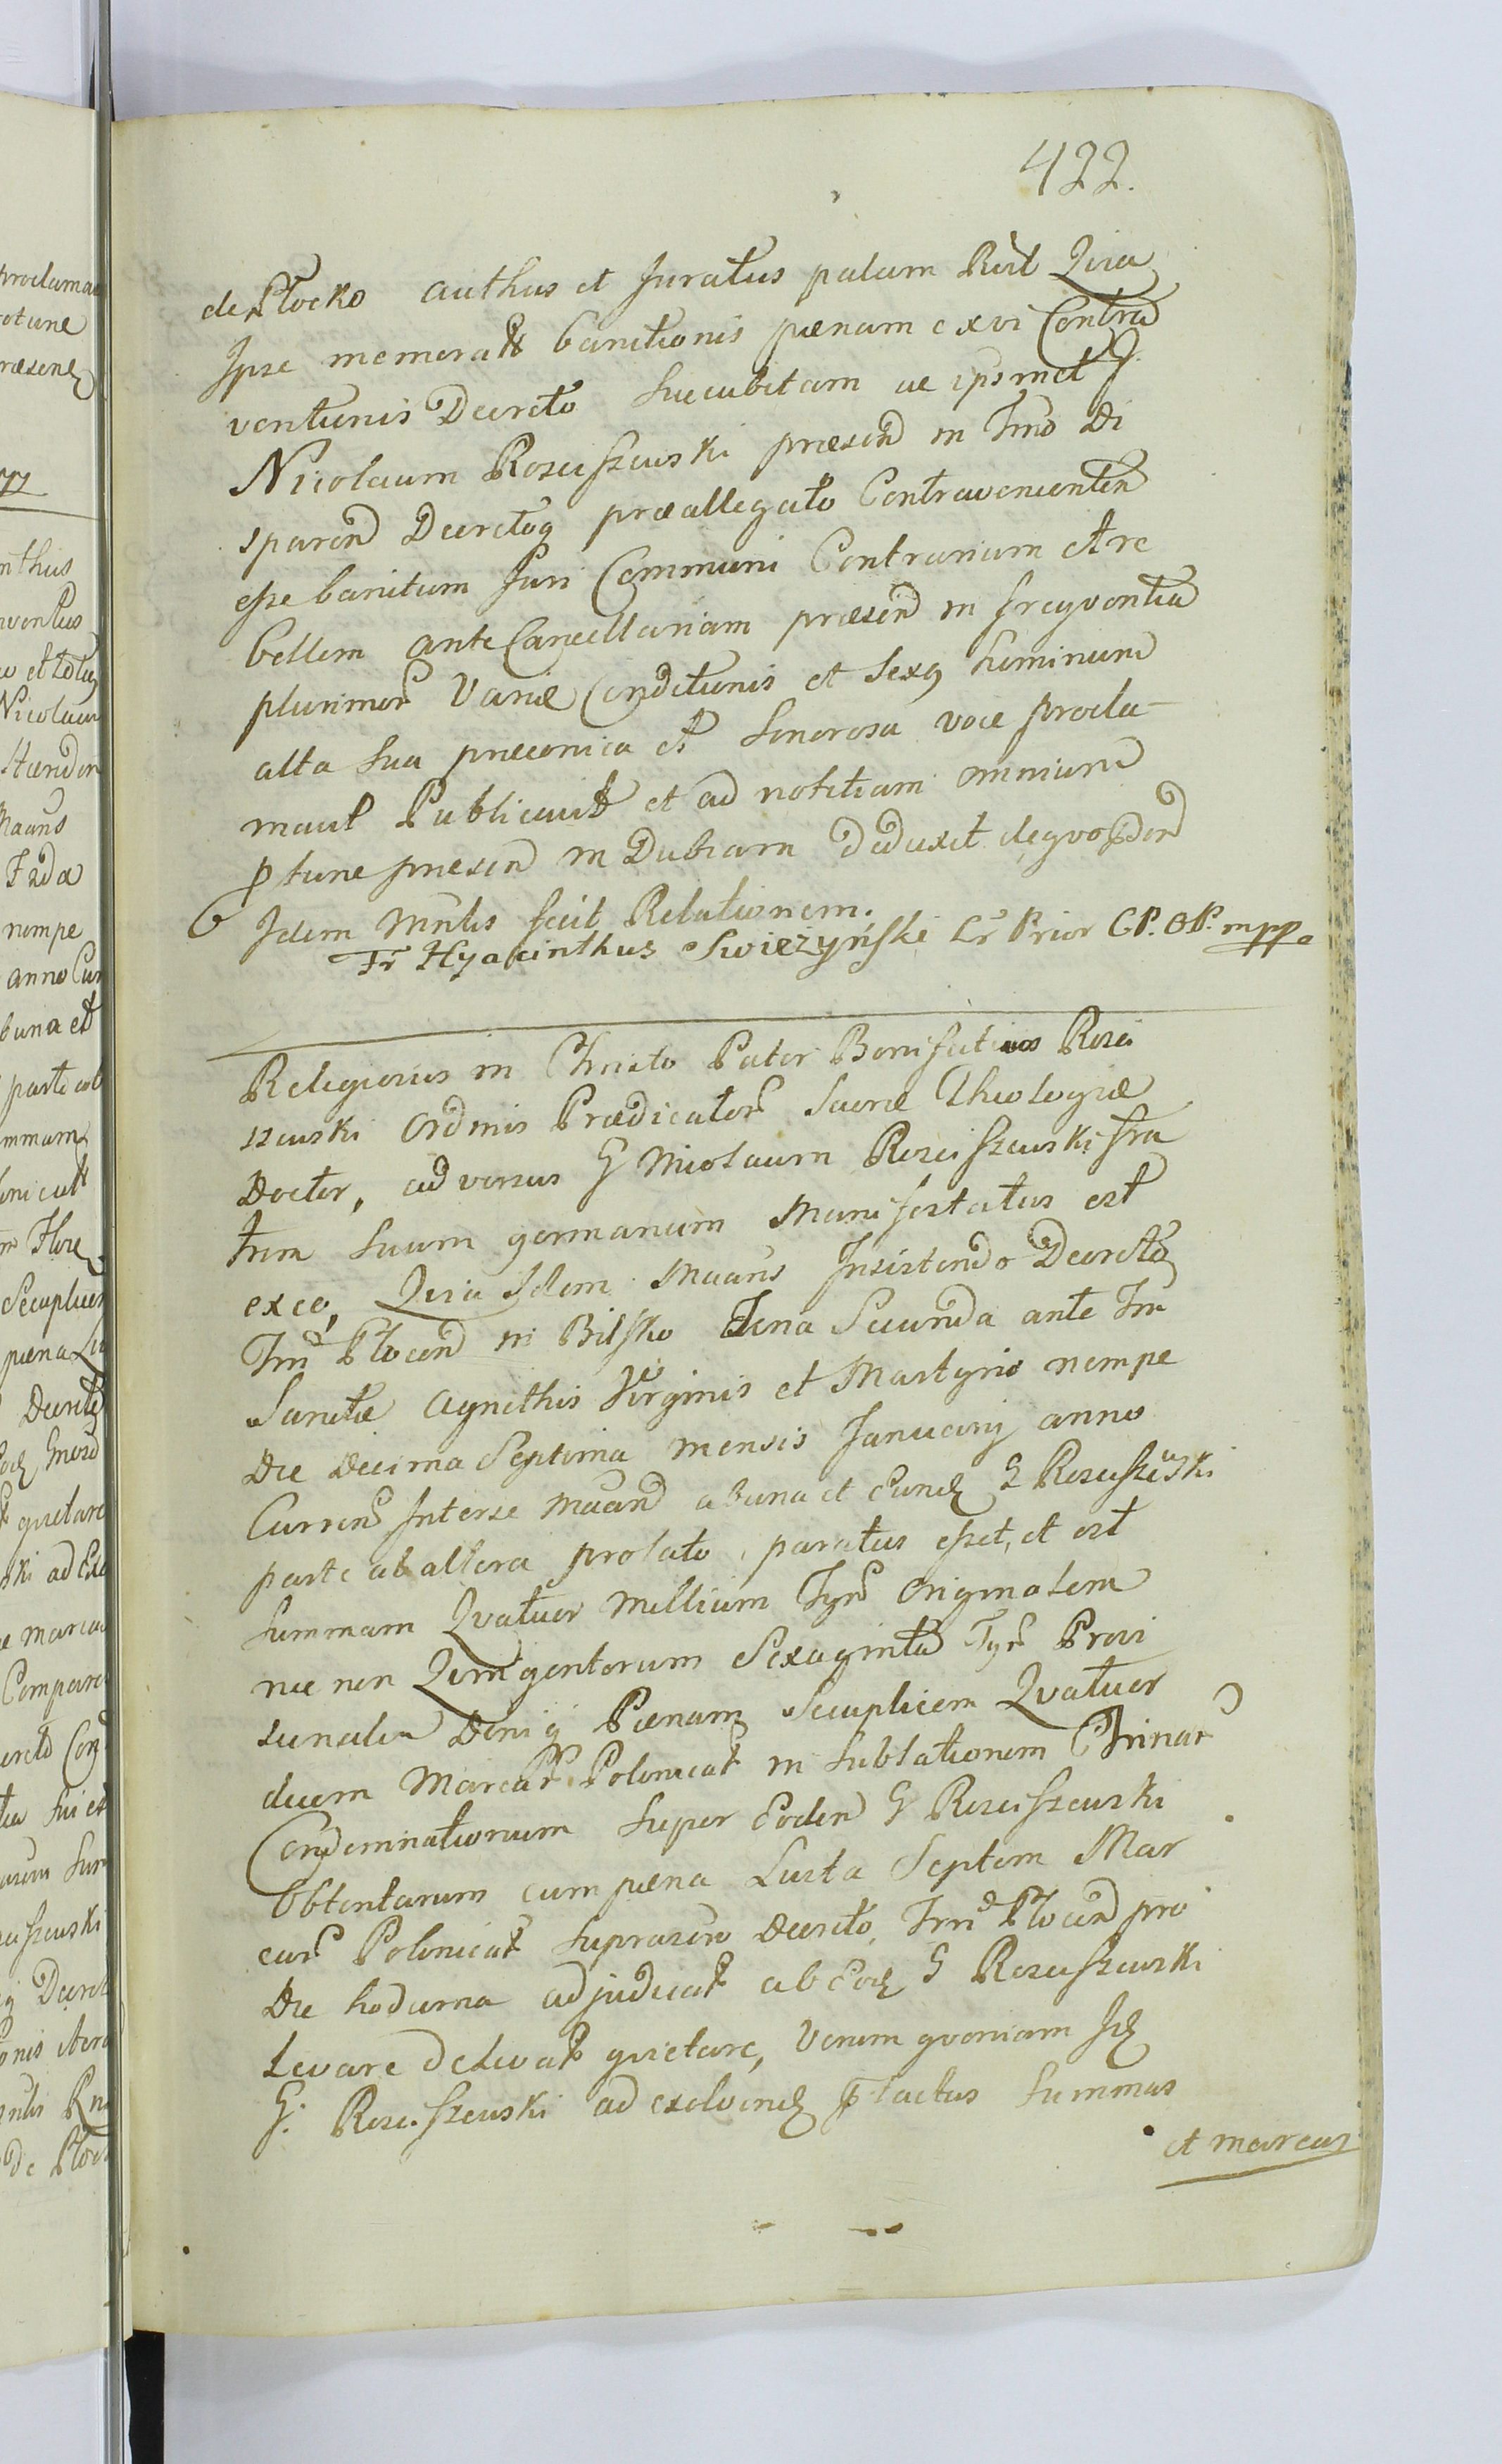 422.
de Płocko authus et Juratus palam Rest Quia
Ipse memorat banitionis pœnam ex vi Contra
ventionis Decreto Succubitam ac ipsmet G.
Nicolaum Rosciszewski præsen in Trno Di
sparen Decretoq præallegato Contravenienten
esse banitum Juri Communi Contrarium et re
bellem ante Cancellariam præsen in freqventia
plurimor Variæ Conditionis et Sexq hominum
alta Sua præconica et Sonorosa voce procla-
mavit Publicavit et ad notitiam omnium
p tunc præsen in Dubiam deduxit deqvo
Idem Mnlis fecit Relationem.
Fr Hyacinthus Swiezyński Lr Prior C.P. O.P. mpp
Religiosus in Christo Pater Bonifatius Rosci
szewski Ordinis Prædicator Sacræ Theologiæ
Doctor, adversus G Nicolaum Rosciszewski fra
trem Suum germanum Manifestatus est
exeo, Quia Idem Maans Insistendo Decreto
Trn Plocen in Bilsko Feria Secunda ante Fm
Sanctæ Agnethis Virginis et Martyris nempe
Die Decima Septima mensis Januarij anno
Curren Interse maan ab una et Eund G Rosciszewski
parte ab altera prolato, paratus esset, et est
Summam Qvatuor Millium Tyn Originalem
nec non Qvingentorum Sexaginta Tyn Provi
sionalem Deniq Pœnam Secuplicem Qvatuor
decem Marcar Polonicat in Sublationem Trinar
Condemnationum Super Eoden G Rosciszewski
Obtentarum cum pœna Lucta Septem Mar
car Polonicat Suprascro Decreto, Trn Plocen pro
Die hodierna adjudicat ab Eod G Rosciszewski
Levare deLevat qvietare, Verum qvoniam Id
G. Rosciszewski ad exolvend p tactus Summas
et marcas